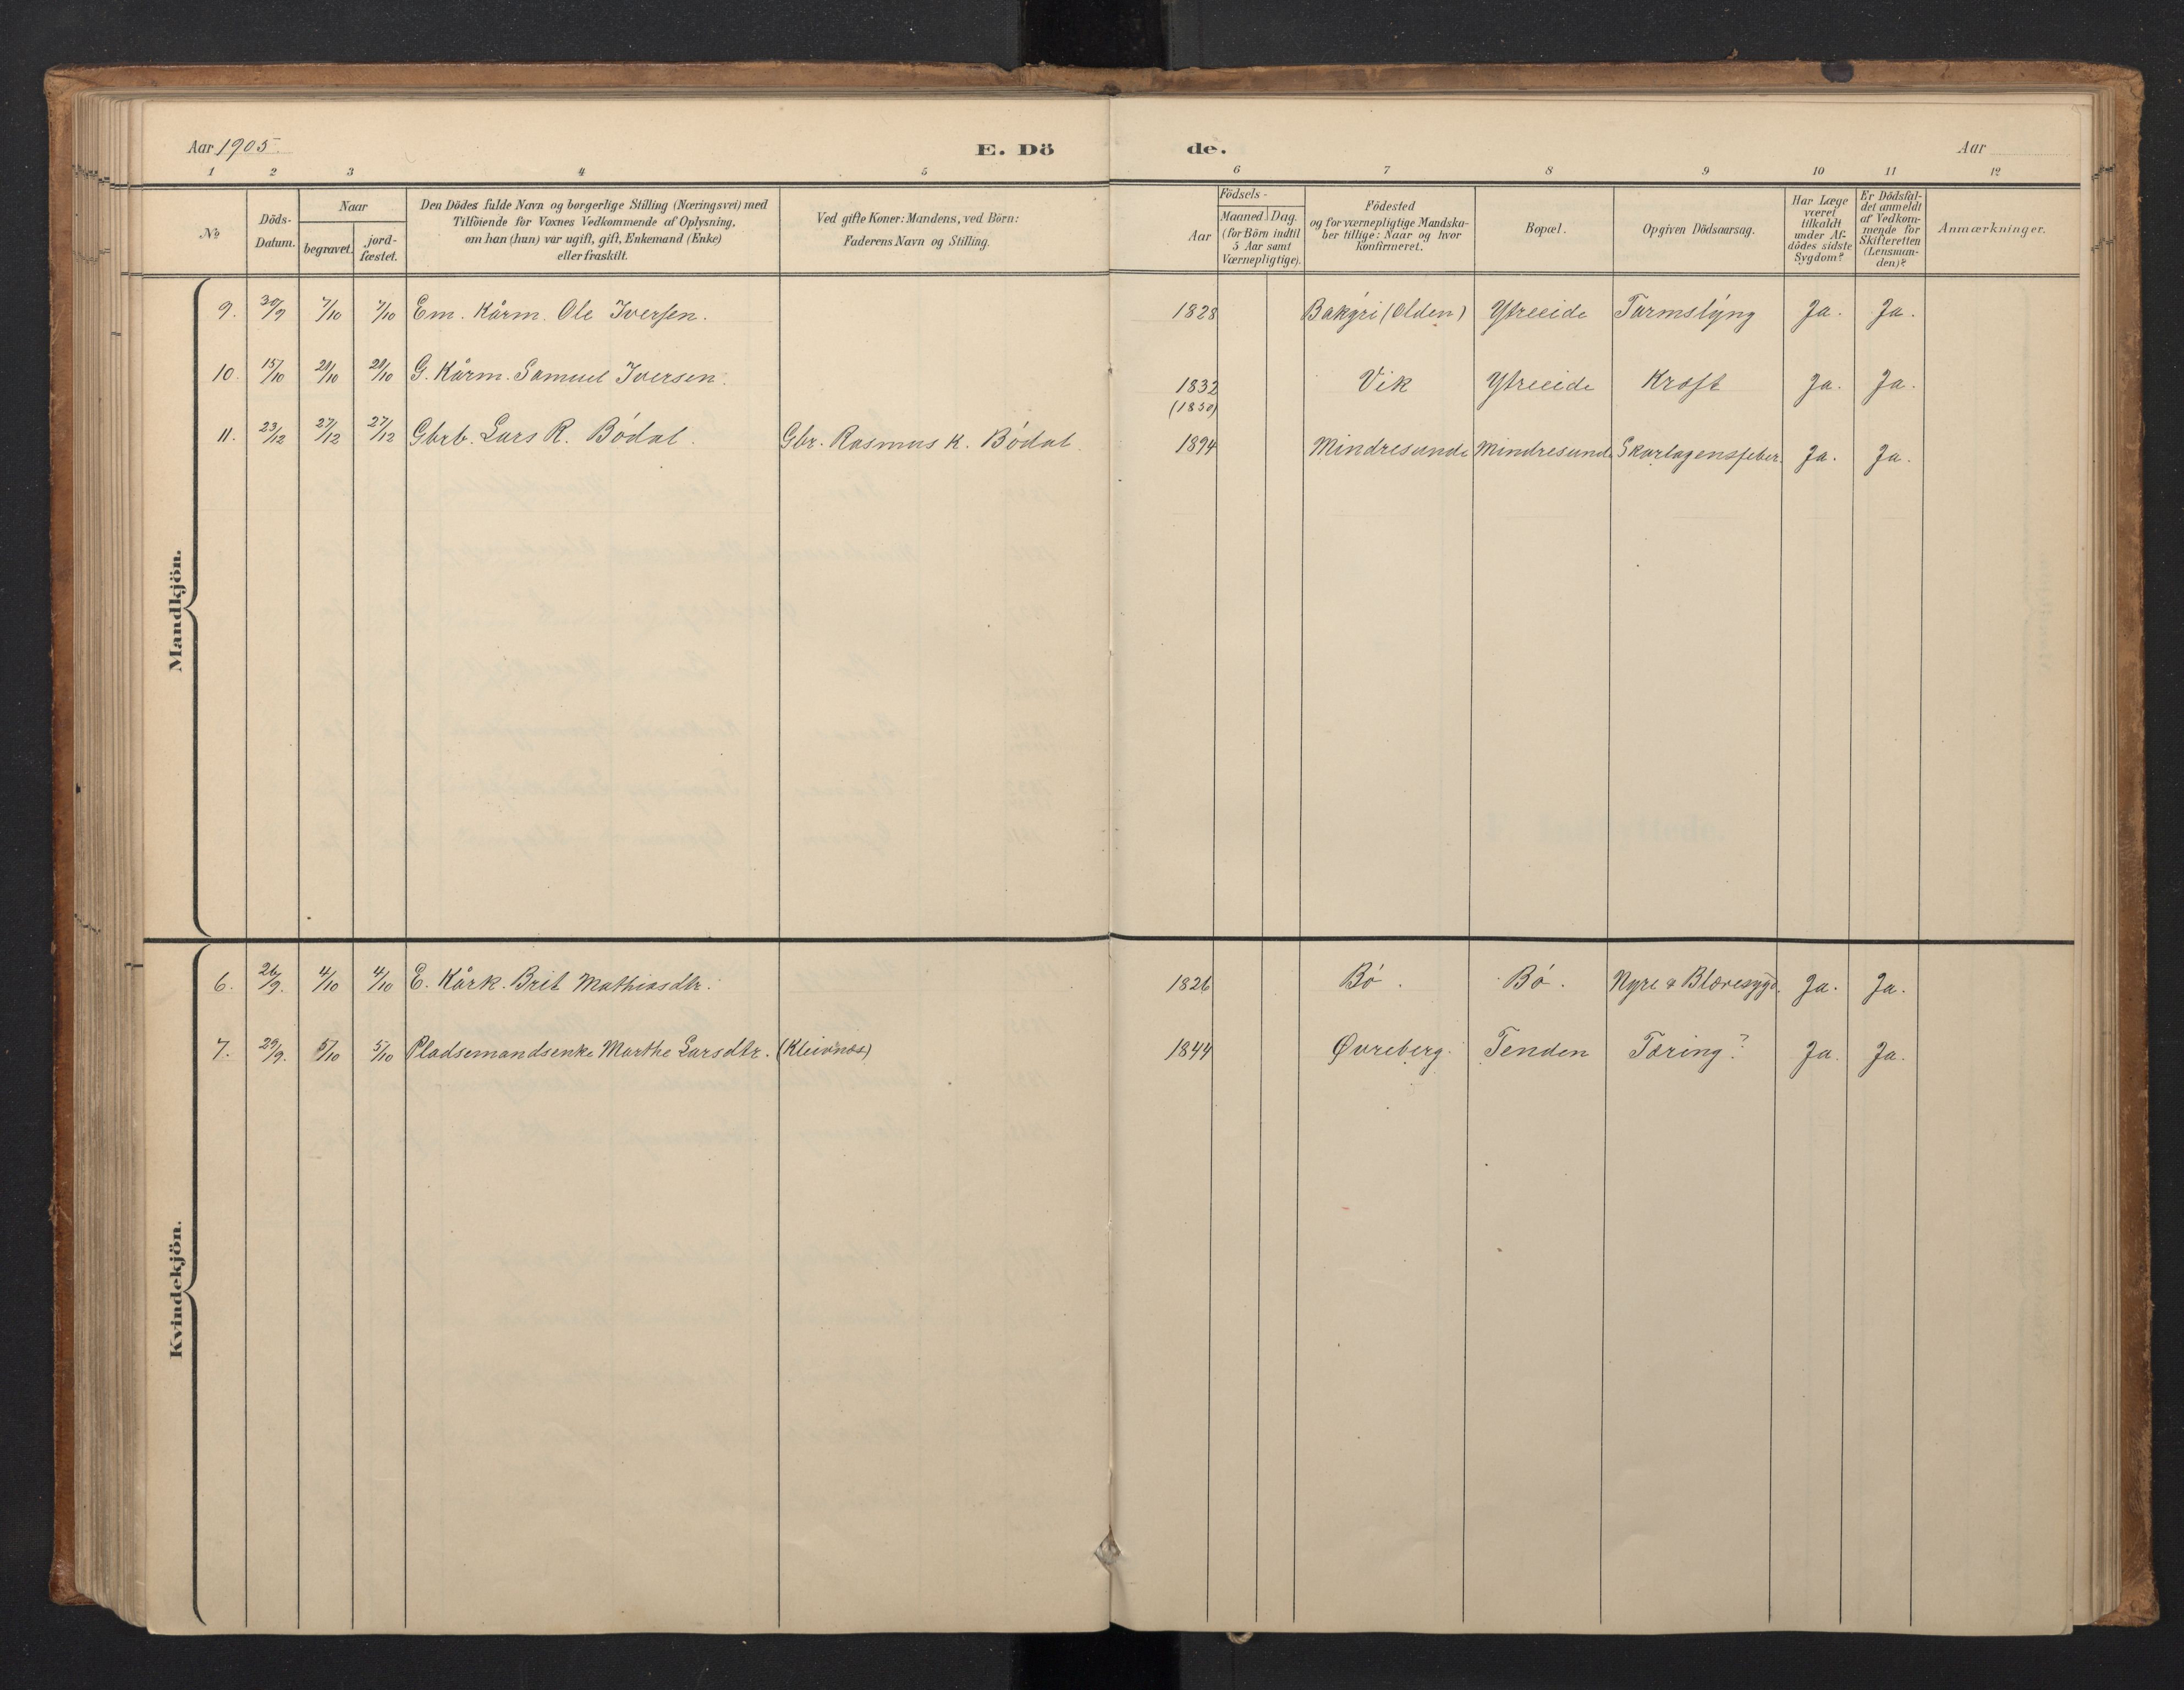 Aar 1905. E. Dö de. Aar
1 2 3 4 5 6 7 8 9 10 11 12
No
Döds-
Datum.
Naar
begravet.
jord-
fæstet.
Den Dödes fulde Navn og borgerlige Stilling (Næringsvei) med
Tilföiende for Voxnes Vedkommende af Oplysning,
om han (hun) var ugift, gift, Enkemand (Enke)
eller fraskilt.
Ved gifte Koner: Mandens, ved Börn:
Faderens Navn og Stilling.
Födsels-
Aar
Maaned. Dag.
(for Börn indtil
5 Aar samt
Værnepligtige).
Födested
og for værnepligtige Mandska-
ber tillige: Naar og hvor
Konfirmeret.
Bopæl.
Opgiven Dödsaarsag.
Har Læge
været
tilkaldt
under Af-
dödes sidste
Sygdom?
Er Dödsfal-
det anmeldt
af Vedkom-
mende for
Skifteretten
(Lensman-
den)?
Anmærkninger.
Mandkjön.
9. 30/9 7/10 7/10 Em. Kårm. Ole Iversen. 1828 Bakøri (Olden) Ytreeide Tarmslyng Ja. Ja.
10. 15/10 21/10 21/10 G. Kårm. Samuel Iversen. 1832 Vik Ytreeide Kræft Ja. Ja.
(1830)
11. 23/12 27/12 27/12 Gbrb. Lars R. Bödal. Gbr. Rasmus K. Bödal. 1894 Mindresunde Mindresunde Skarlagensfeber. Ja. Ja.
Kvindekjön.
6. 26/9. 4/10 4/10 E. Kårk. Brit Mathiasdtr. 1826 Bö. Bö. Nyre & Blæresygd. Ja. Ja.
7. 29/9. 5/10 5/10 Pladsemandsenke Marthe Larsdtr. (Kleivnæs) 1844 Øvreberg. Tenden Tæring? Ja. Ja.